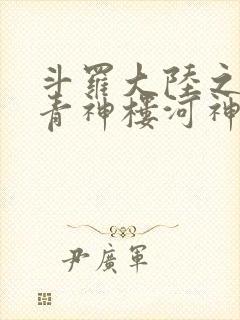 斗羅大陸之
青神樓河神
尹廣軍